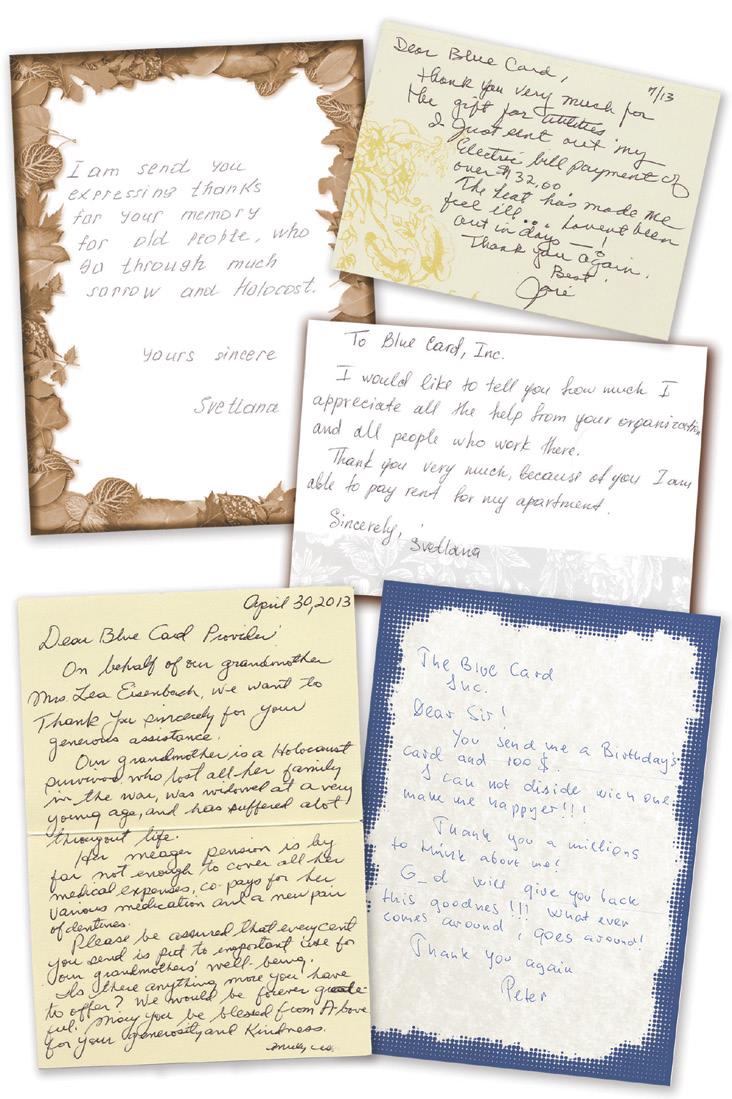 I am send you
expressing thanks
for your memory
for old people, who
go through much
sorrow and Holocost.
yours sincere
Svetlana
Dear Blue Card,
7/13
thank you very much for
the gift for utilities
I Just sent out my
Electric bill payment of
over $32,00
The heat has made me
feel ill... havent been
out in days —!
Thank you again.
Best
To Blue Card, Inc.
I would like to tell you how much I
appreciate all the help from your organization
and all people who work there.
Thank you very much, because of you I am
able to pay rent for my apartment.
Sincerely,
Svetlana
April 30, 2013
Dear Blue Card Provider
On behalf of our grandmother
Mrs. Lea Eisenbach, we want to
Thank You sincerely for your
generous assistance.
Our grandmother is a Holocaust
survivor who lost all her family
in the war, was widowed at a very
young age, and has suffered alot
througout life.
Her meager pension is by
far not enough to cover all her
medical expenses, co-pays for her
various medication and a new pair
of dentures.
Please be assured that every cent
you send is put to important use for
our grandmothers' well-being.
Is there anything more you have
to offer? We would be forever grate-
ful. May you be blessed from A-bove
for your generosity and Kindness.
The Blue Card
Inc.
Dear Sir!
You send me a Birthday's
card and 100 $.
I can not diside wich one
make me happyer!!!
Thank you a millions
to think about me!
G_d will give you back
this goodnes!!! what ever
comes around i goes around!
Thank you again
Peter